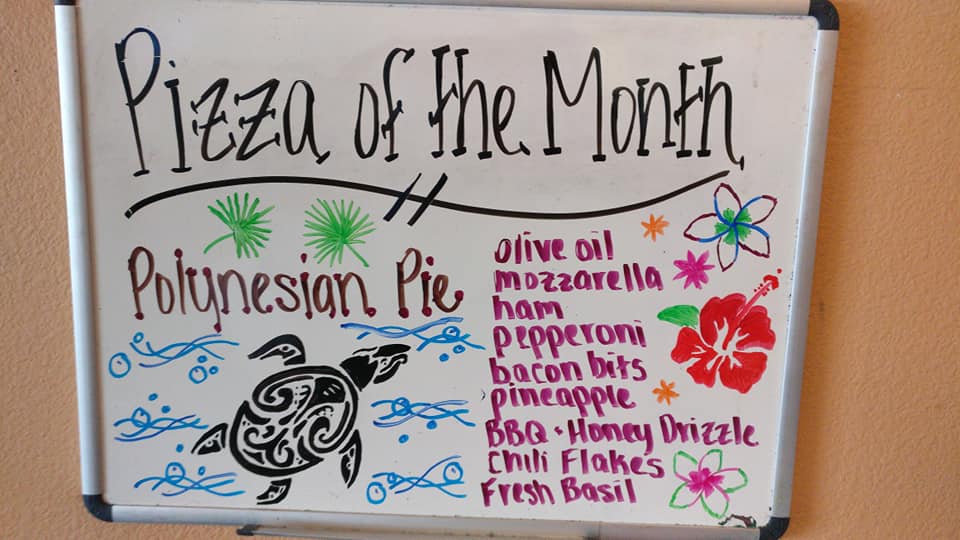 Pizza of the Month
Polynesian Pie
olive oil
mozzarella
ham
pepperoni
bacon bits
pineapple
BBQ + Honey Drizzle
Chili Flakes
Fresh Basil